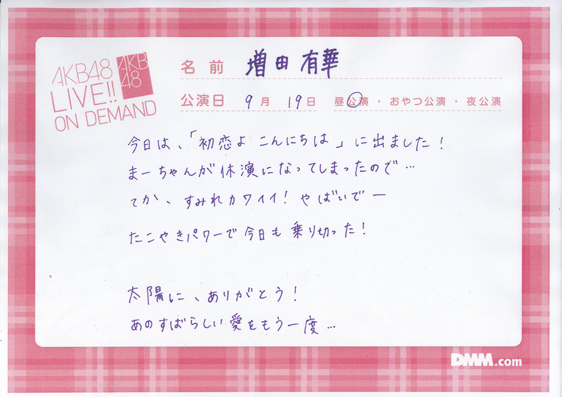 AKB48
LIVE!!
ON DEMAND
AKB
48
名前 増田有華
公演日 9月 19日 昼公演・おやつ公演・夜公演
今日は、「初恋よ こんにちは」に出ました!
まーちゃんが休演になってしまったので…
てか、すみれカワイイ! やばいでー
たこやきパワーで今日も乗り切った!
太陽に、ありがとう!
あのすばらしい愛をもう一度…
DMM.com